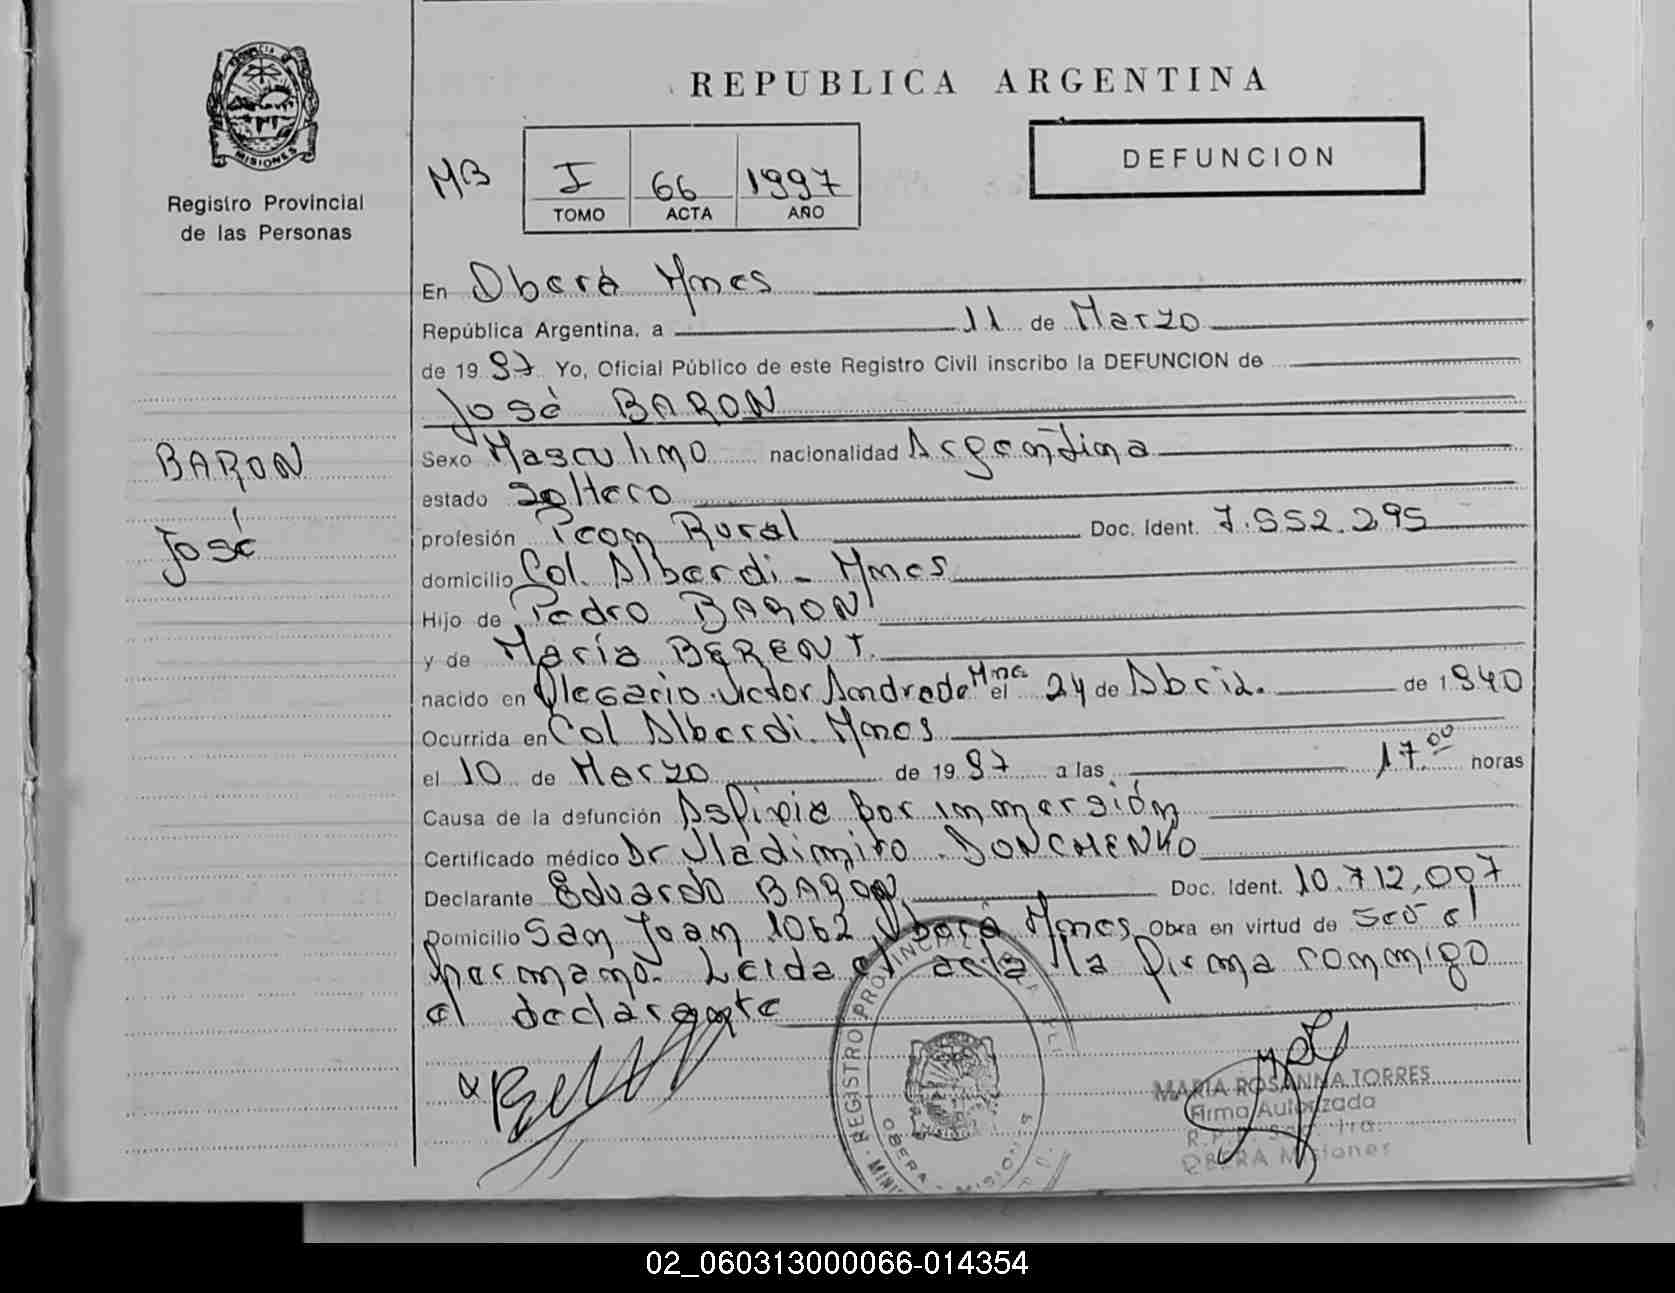 MISIONES
Registro Provincial
de las Personas
BARON
José
REPUBLICA ARGENTINA
MB
I 66 1997
TOMO ACTA AÑO
DEFUNCION
En Oberá Mnes
República Argentina, a 11 de Marzo
de 1997 Yo, Oficial Público de este Registro Civil inscribo la DEFUNCION de
José BARON
Sexo Masculino nacionalidad Argentina
estado Soltero
profesión Peon Rural Doc. Ident. 7.552.295
domicilio Col. Alberdi - Mnes
Hijo de Pedro BARON
y de María BERENT.
nacido en Olegario Victor Andrade Mnes el 24 de Abril. de 1940
Ocurrida en Col Alberdi. Mnes
el 10 de Marzo de 1997 a las 17.00 horas
Causa de la defunción Asfixia por inmersión
Certificado médico Dr Vladimiro DONCHENKO
Declarante Eduardo BARON Doc. Ident. 10.712.007
Domicilio San Juan 1062 Oberá Mnes Obra en virtud de Seō el
hermano. Leida el acta la firma conmigo
el declarante
REGISTRO PROVINCIAL
OBERA - MISIONES
MARIA ROSANNA TORRES
Firma Autorizada
OBERA Misiones
02_060313000066-014354